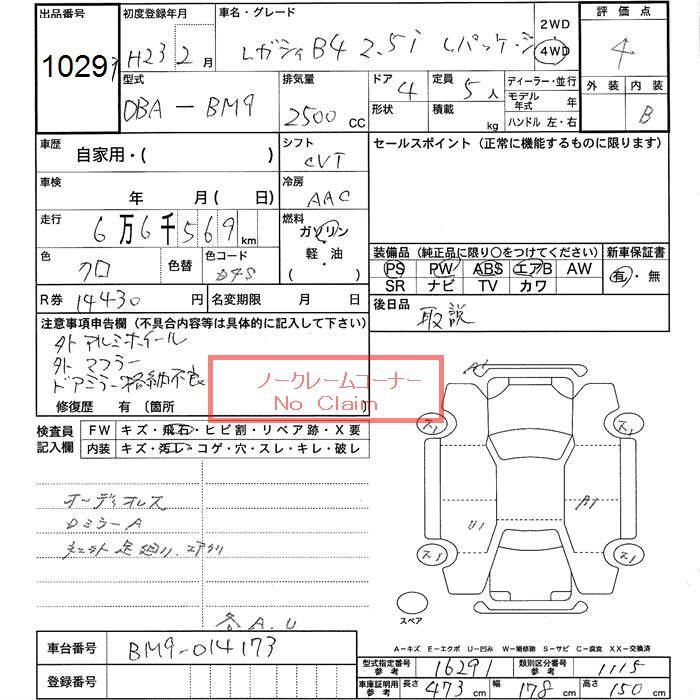 出品番号 初度登録年月 車名・グレード 2WD 評価点
10291 H23 2月 レガシィB4 2.5i Lパッケージ 4WD 4
型式 排気量 ドア 4 定員 5人 ディーラー・並行 外装 内装
DBA-BM9 2500cc 形状 積載 kg モデル年式 年 B
ハンドル 左・右
車歴 自家用・( ) シフト CVT セールスポイント (正常に機能するものに限ります)
車検 年 月 ( 日) 冷房 AAC
走行 6万6千569km 燃料 ガソリン
軽・油
・( )
色 クロ 色替 色コード D4S
装備品 (純正品に限り○をつけてください) 新車保証書
PS PW ABS エアB AW 有・無
SR ナビ TV カワ
R券 14430円 名変期限 月 日 後日品 取説
注意事項申告欄 (不具合内容等は具体的に記入して下さい)
外 アルミホイール
外 マフラー
ドアミラー格納不良
ノークレームコーナー
No Claim
修復歴 有 〔箇所
検査員記入欄 FW キズ・飛石・ヒビ割・リペア跡・X要
内装 キズ・汚レ・コゲ・穴・スレ・キレ・破レ
オーディオレス
DミラーA
各A.U
A1
ス1 ス1
U1 A1
ス1 ス1
スペア
A-キズ E-エクボ U-凹み W-補修跡 S-サビ C-腐食 XX-交換済
車台番号 BM9-014173
型式指定番号 参考 16291 類別区分番号 参考 1115
登録番号
車庫証明用 参考 長さ 473cm 幅 178cm 高さ 150cm